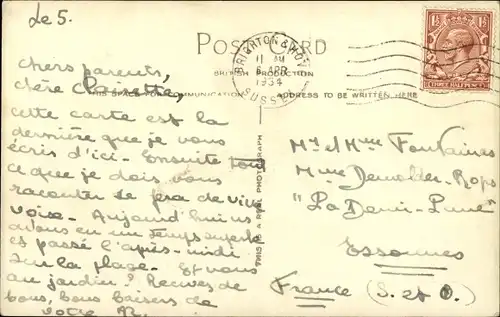 Le 5.
POST CARD
BRIGHTON & HOVE
11 AM
6 APR
1934
SUSSEX
1½ 1½
THREE HALFPENCE
BRITISH PRODUCTION
THIS SPACE FOR COMMUNICATION
ADDRESS TO BE WRITTEN HERE
THIS IS A REAL PHOTOGRAPH
chers parents,
chère Clairette,
cette carte est la
dernière que je vous
écris d'ici. Ensuite tout
ce que je dois vous
raconter se fera de vive
voix. Aujourd'hui nous
avons eu un temps superbe
et passé l'après-midi
sur la plage. Et vous
au jardin? Recevez de
bons, bons baisers de
votre
Mr et Mme Fontaines
Mme Demolder-Rops
"La Demi-Lune"
Essonnes
France (S. et O.)